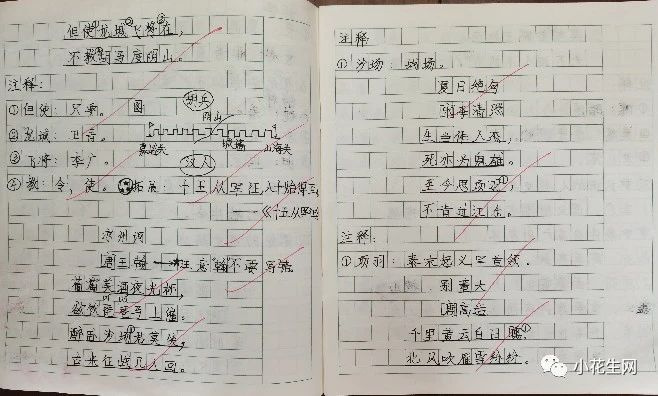 但使龙城飞将在,
不教胡马度阴山。
注释:
①但使:只要。图
胡兵
阴山
②龙城:卫青。
嘉峪关 城墙 山海关
③飞将:李广。
汉人
④教:令,使。拓展:十五从军征,八十始得归
——《十五从军征》
凉州词
王翰
葡萄美酒夜光杯,
欲饮琵琶马上催。
醉卧沙场君莫笑,
古来征战几人回。
注释
①沙场:战场。
夏日绝句
李清照
生当作人杰,
死亦为鬼雄。
至今思项羽①,
不肯过江东。
注释:
①项羽:秦末起义军首领。
别董大
高适
千里黄云白日曛①
北风吹雁雪纷纷。
小花生网